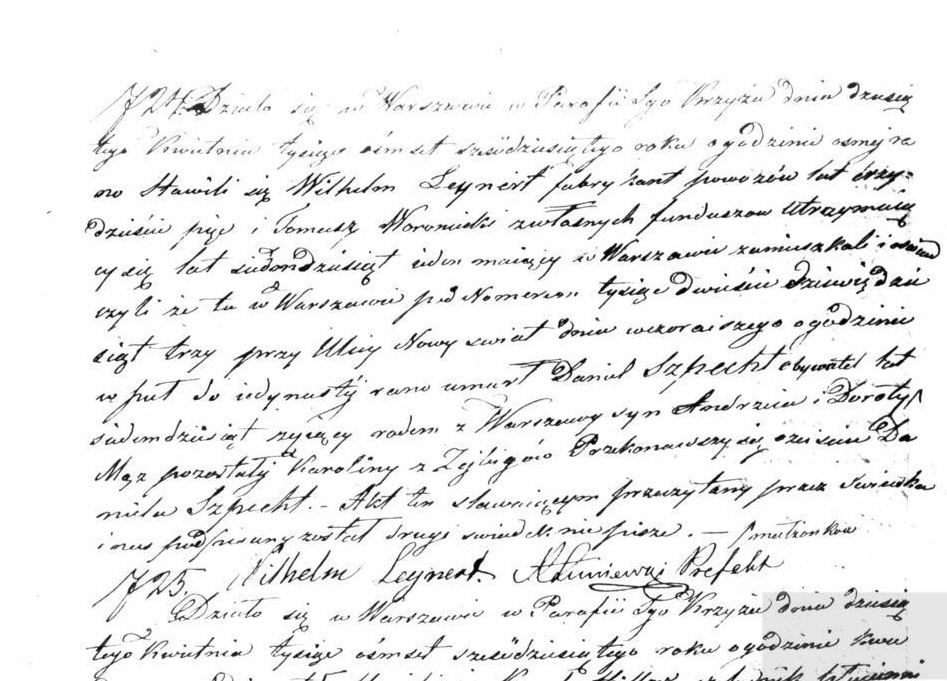 724. Działo się w Warszawie w Parafii Sgo Krzyża dnia dziesią
tego Kwietnia tysiąc ośmset sześćdziesiątego roku o godzinie osmej ra
no Stawili się Wilhelm Leynert fabrykant powozów lat trzy-
dzieście pięć i Tomasz z własnych funduszow utrzymuią
cy się lat siedmdziesiąt ieden maiący w Warszawie zamieszkali i oświad
czyli że tu w Warszawie pod Nomerem tysiąc dwieście dziewięćdzie
siąt trzy przy Ulicy Nowy świat dnia wczoraiszego o godzinie
w puł do iedynastéj rano umarł Daniel Szpecht obywatel lat
siedemdziesiąt żyiący rodem z Warszawy syn Andrzeia i Doroty
Mąż pozostałéj Karoliny z Przekonawszy się o zeiściu Da
niela Szpecht. - Akt ten stawaiącym przeczytany przez świadka
i nas podpisany został drugi świadek nie pisze. — małżonków
Wilhelm Leynert. Prefekt
725.
Działo się w Warszawie w Parafii Sgo Krzyża dnia dziesią
tego Kwietnia tysiąc ośmset sześćdziesiątego roku o godzinie